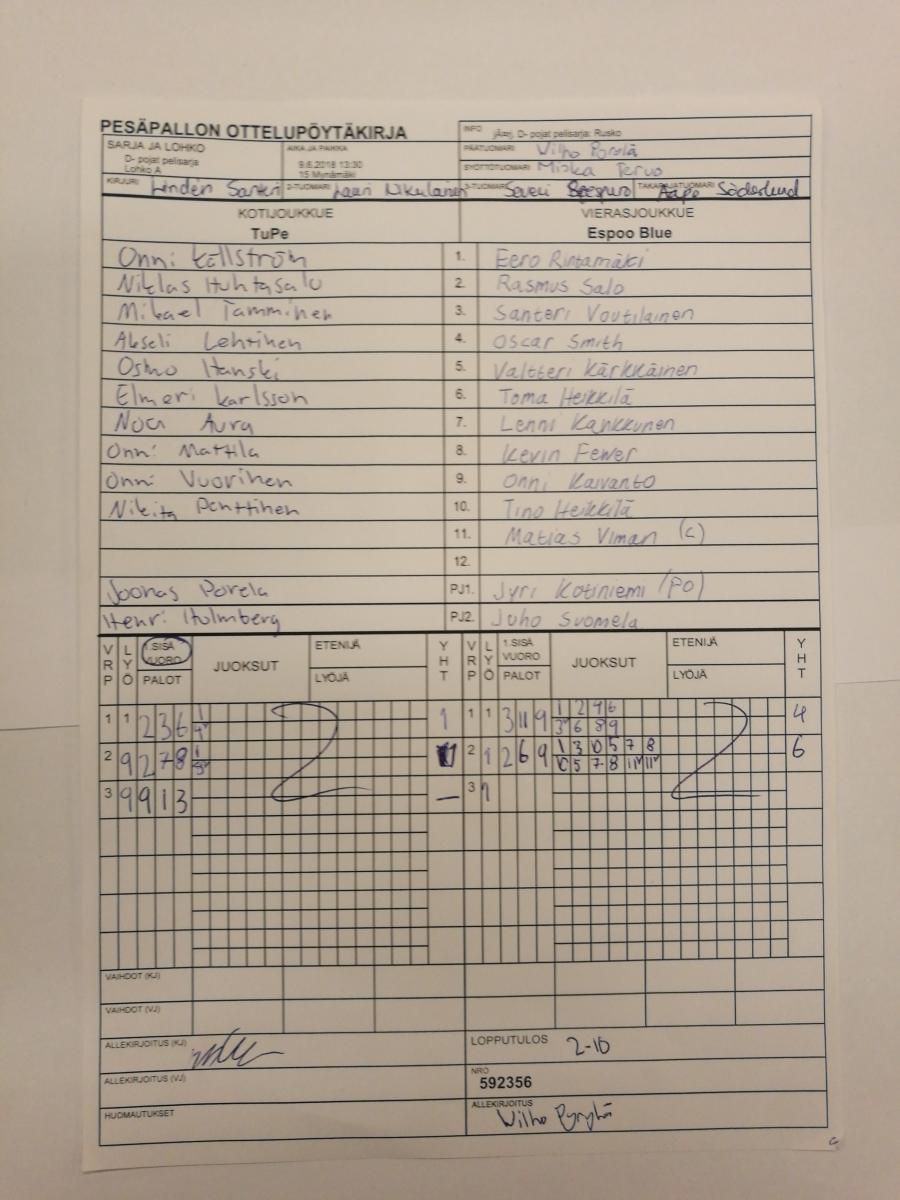 PESÄPALLON OTTELUPÖYTÄKIRJA
INFO jÄ¤rj. D- pojat pelisarja: Rusko
SARJA JA LOHKO
D- pojat pelisarja
Lohko A
AIKA JA PAIKKA
9.6.2018 13:30
15 Mynämäki
PÄÄTUOMARI Wilho Pyrylä
SYÖTTÖTUOMARI Miska Tervo
KIRJURI Linden Santeri 2-TUOMARI Lauri Nikulainen 3-TUOMARI Severi TAKARAJATUOMARI Aapo Söderlund
KOTIJOUKKUE VIERASJOUKKUE
TuPe Espoo Blue
Onni Källström 1. Eero Rintamäki
Niklas Huhtasalo 2. Rasmus Salo
Mikael Tamminen 3. Santeri Voutilainen
Akseli Lehtinen 4. Oscar Smith
Osmo Hanski 5. Valtteri Kärkkäinen
Elmeri Karlsson 6. Toma Heikkilä
Noa Aura 7. Lenni Kankkunen
Onni Mattila 8. Kevin Fewer
Onni Vuorinen 9. Onni Kaivanto
Nikita Penttinen 10. Tino Heikkilä
11. Matias Viman (c)
12.
Joonas Porela PJ1. Jyri Kotiniemi (PO)
Henri Holmberg PJ2. Juho Suomela
VRP LYÖ 1.SISÄ VUORO PALOT JUOKSUT ETENIJÄ LYÖJÄ YHT VRP LYÖ 1.SISÄ VUORO PALOT JUOKSUT ETENIJÄ LYÖJÄ YHT
1 1 2 3 6 1 1 1 1 3 11 9 1 2 4 6 4
3 6 8 9
2 9 2 7 8 1 2 1 2 6 9 1 3 10 5 7 8 6
10 5 7 8
3 9 9 1 3 — 3 7
VAIHDOT (KJ)
VAIHDOT (VJ)
ALLEKIRJOITUS (KJ) LOPPUTULOS 2-10
ALLEKIRJOITUS (VJ) NRO 592356
HUOMAUTUKSET ALLEKIRJOITUS Wilho Pyrylä